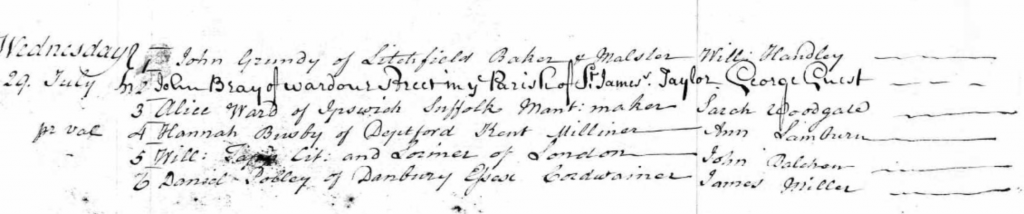 Wednesday 1 John Grundy of Litchfield Baker & Malster Will: Handley
29. July 2 John Bray of wardour Street in ye Parish of St. James's. Taylor George Guest
3 Alice Ward of Ipswich Suffolk Mant: maker Sarah Woodgate
4 Hannah Busby of Deptford Kent Milliner Ann
5 Will: Cit: and Lorimer of London John
6 Daniel of Danbury Essex Cordwainer James Miller